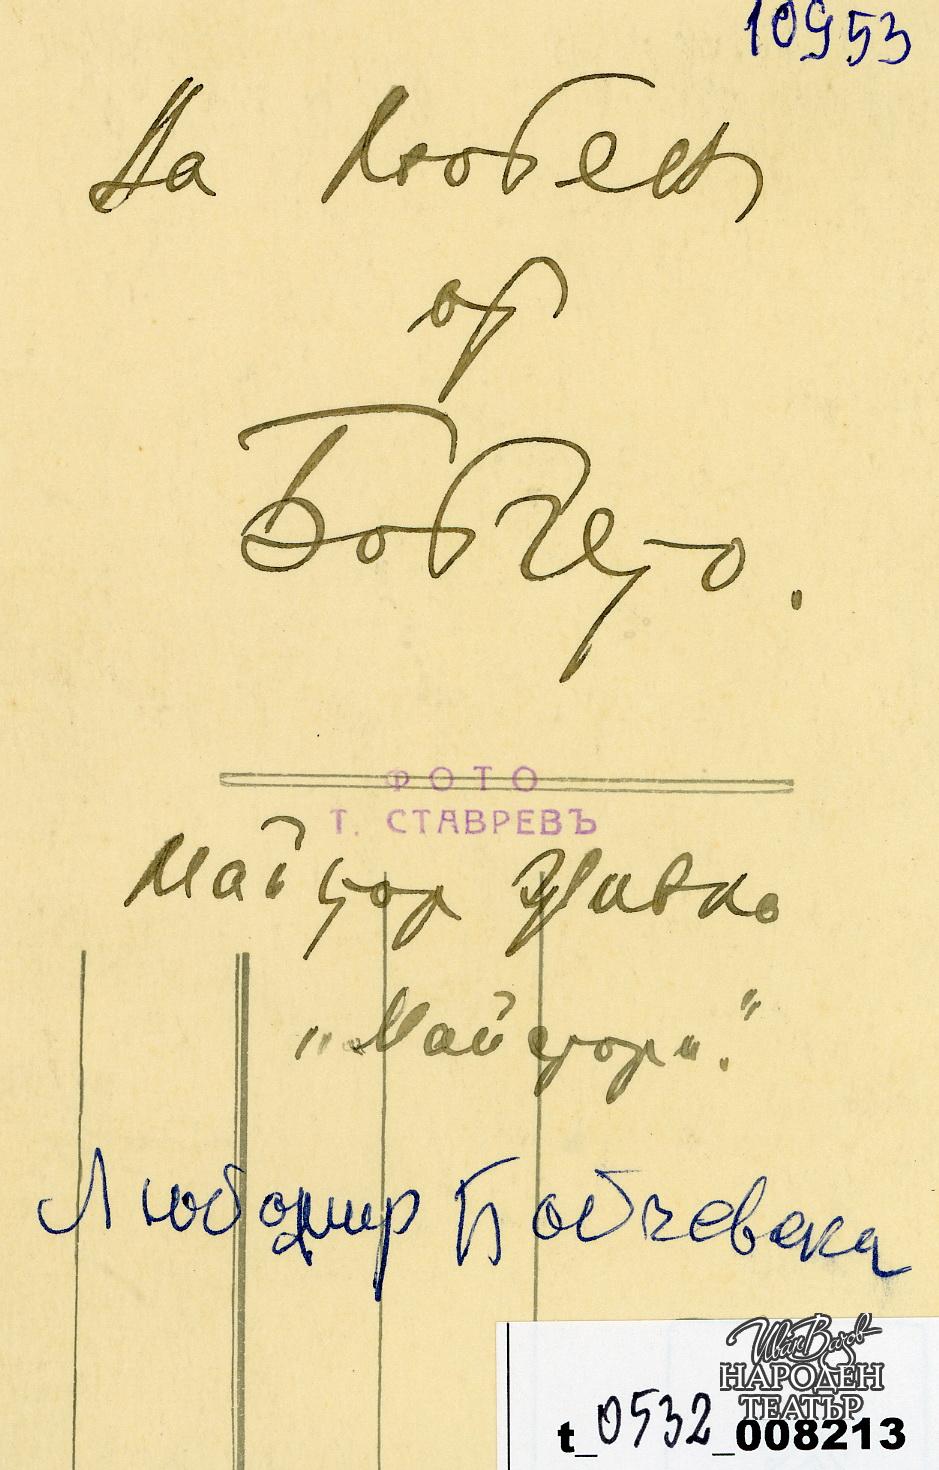 10953
На Любен
от
Бобчето.
ФОТО
Т. СТАВРЕВЪ
Майстор
„Майстори“.
Любомир Бобчевски
Иван Вазов
НАРОДЕН
ТЕАТЪР
t_0532_008213